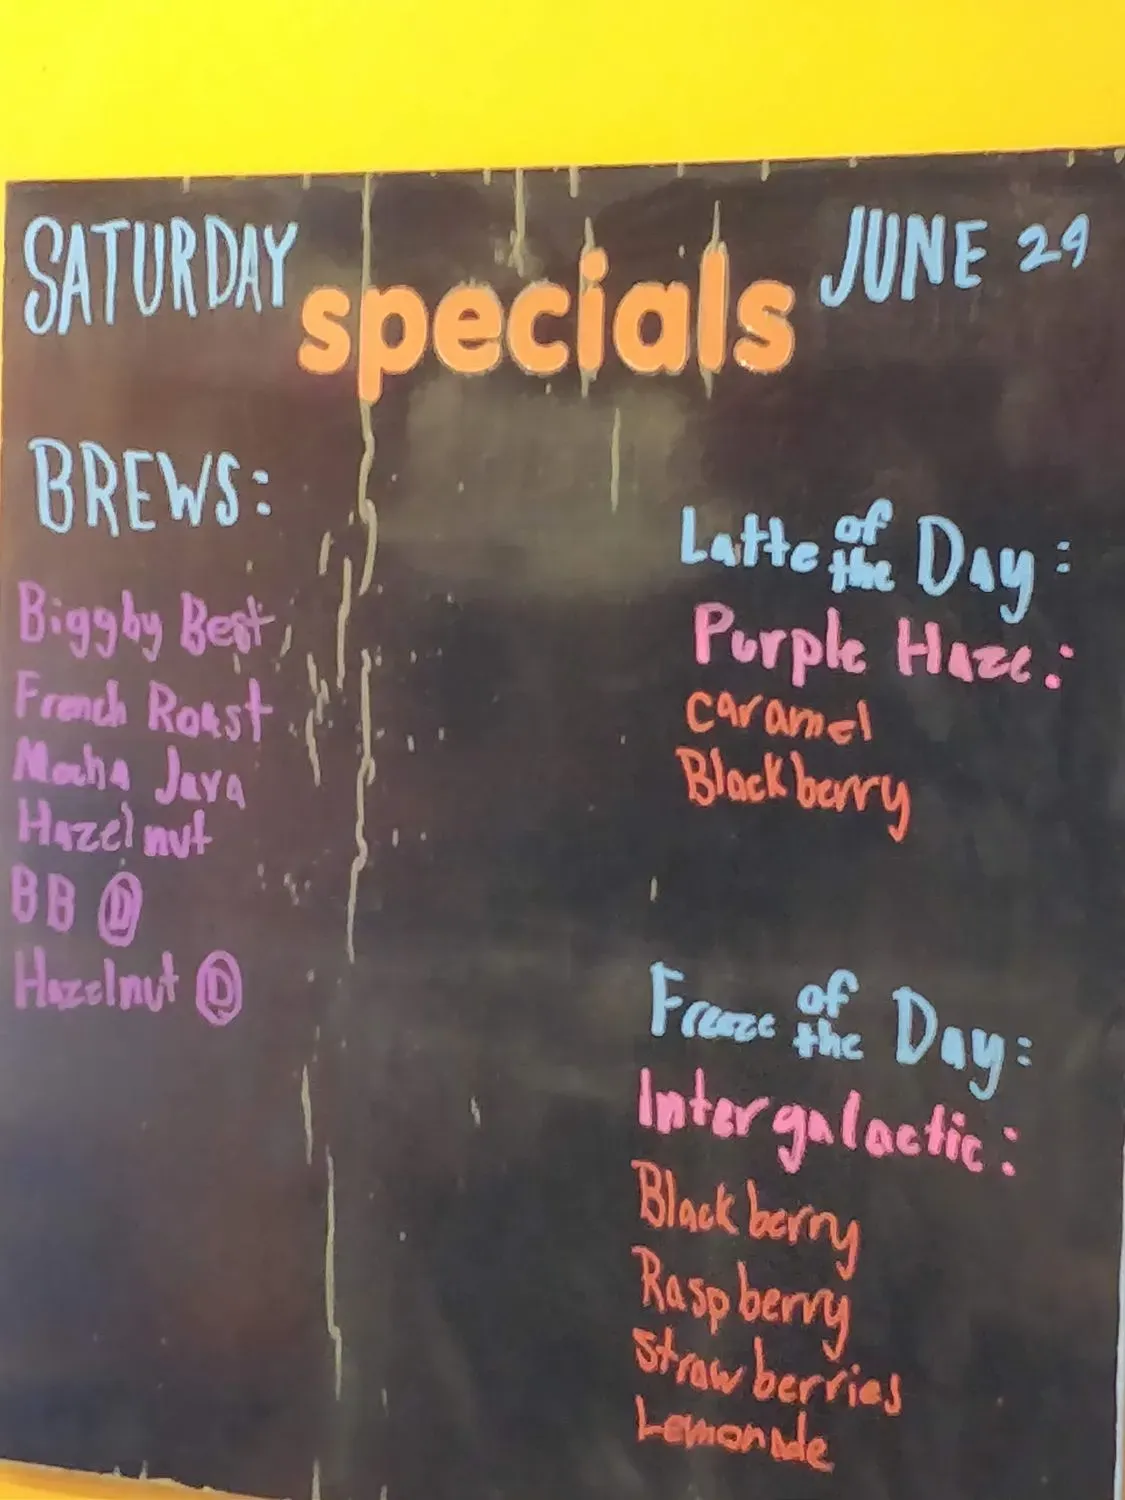 SATURDAY specials JUNE 29
BREWS:
Biggby Best
French Roast
Mocha Java
Hazelnut
BB Ⓓ
Hazelnut Ⓓ
Latte of the Day:
Purple Haze:
caramel
Blackberry
Freeze of the Day:
Intergalactic:
Blackberry
Raspberry
strawberries
Lemonade